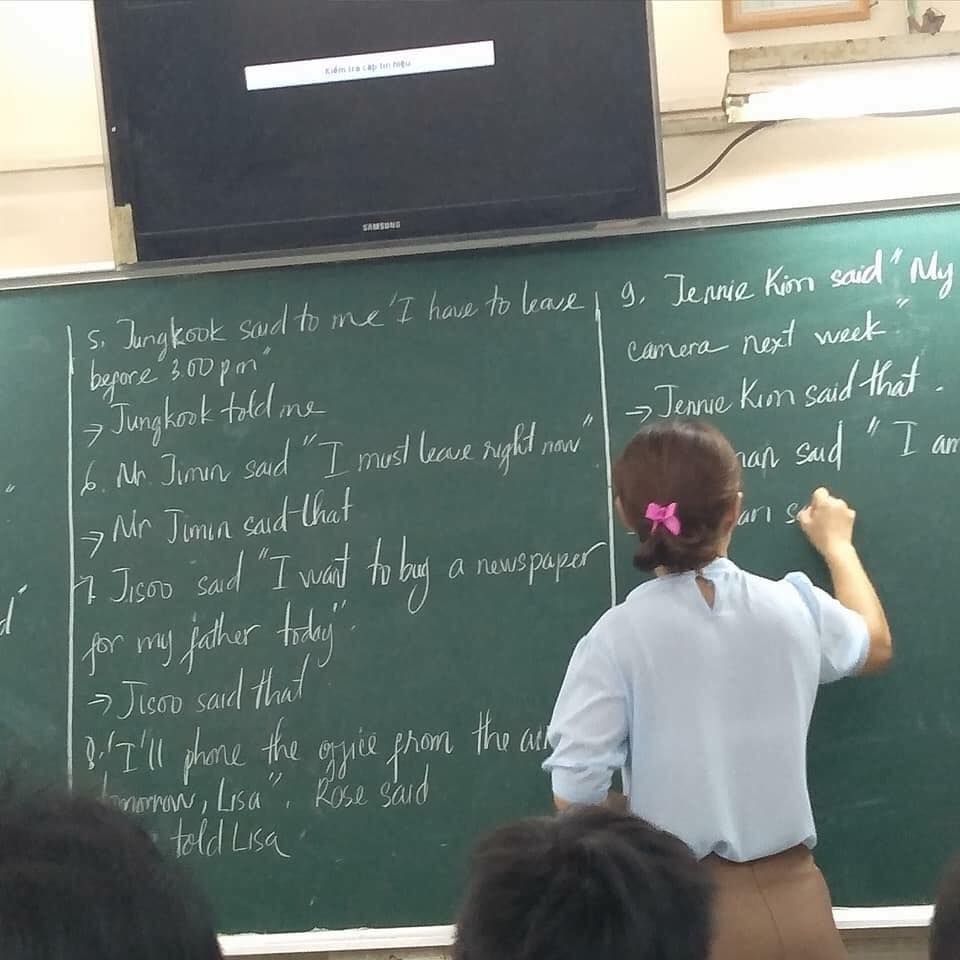 Kiểm tra cáp tín hiệu
SAMSUNG
5. Jungkook said to me "I have to leave
before 3.00 pm"
→ Jungkook told me
6. Mr. Jimin said "I must leave right now"
→ Mr Jimin said that
7. Jisoo said "I want to buy a newspaper
for my father today".
→ Jisoo said that
8. "I'll phone the office from the
tomorrow, Lisa". Rose said
told Lisa
9. Jennie Kim said "My
camera next week"
→ Jennie Kim said that
said "I am